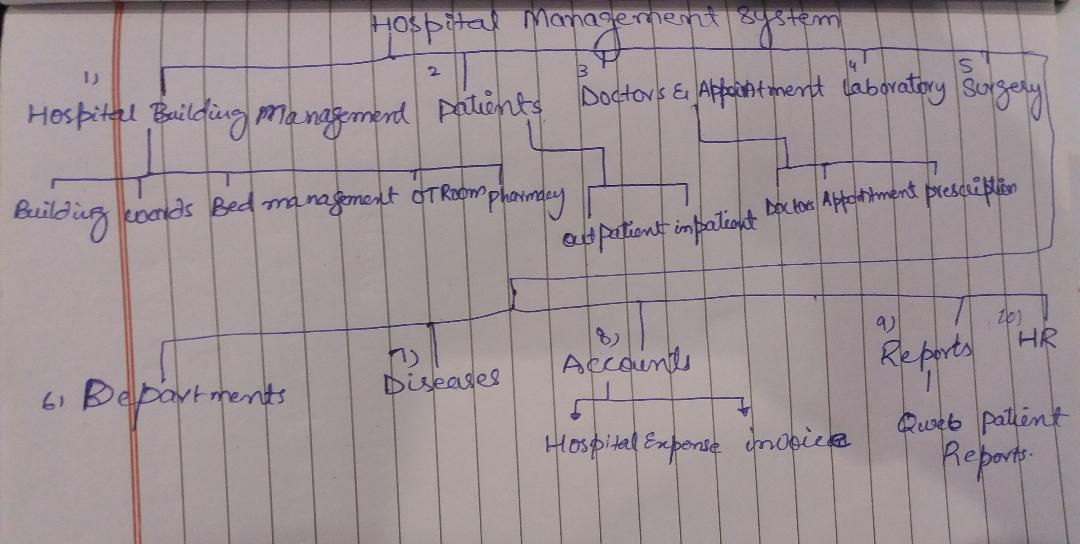 Hospital Management System
1) Hospital Building Management
2 patients
3 Doctors & Appointment
4 Laboratory
5 Surgery
Building wards Bed management OT Room pharmacy
outpatient inpatient
Doctors Appointment prescription
6) Departments
7) Diseases
8) Accounts
Hospital Expense invoice
9) Reports
patient
Reports.
10) HR